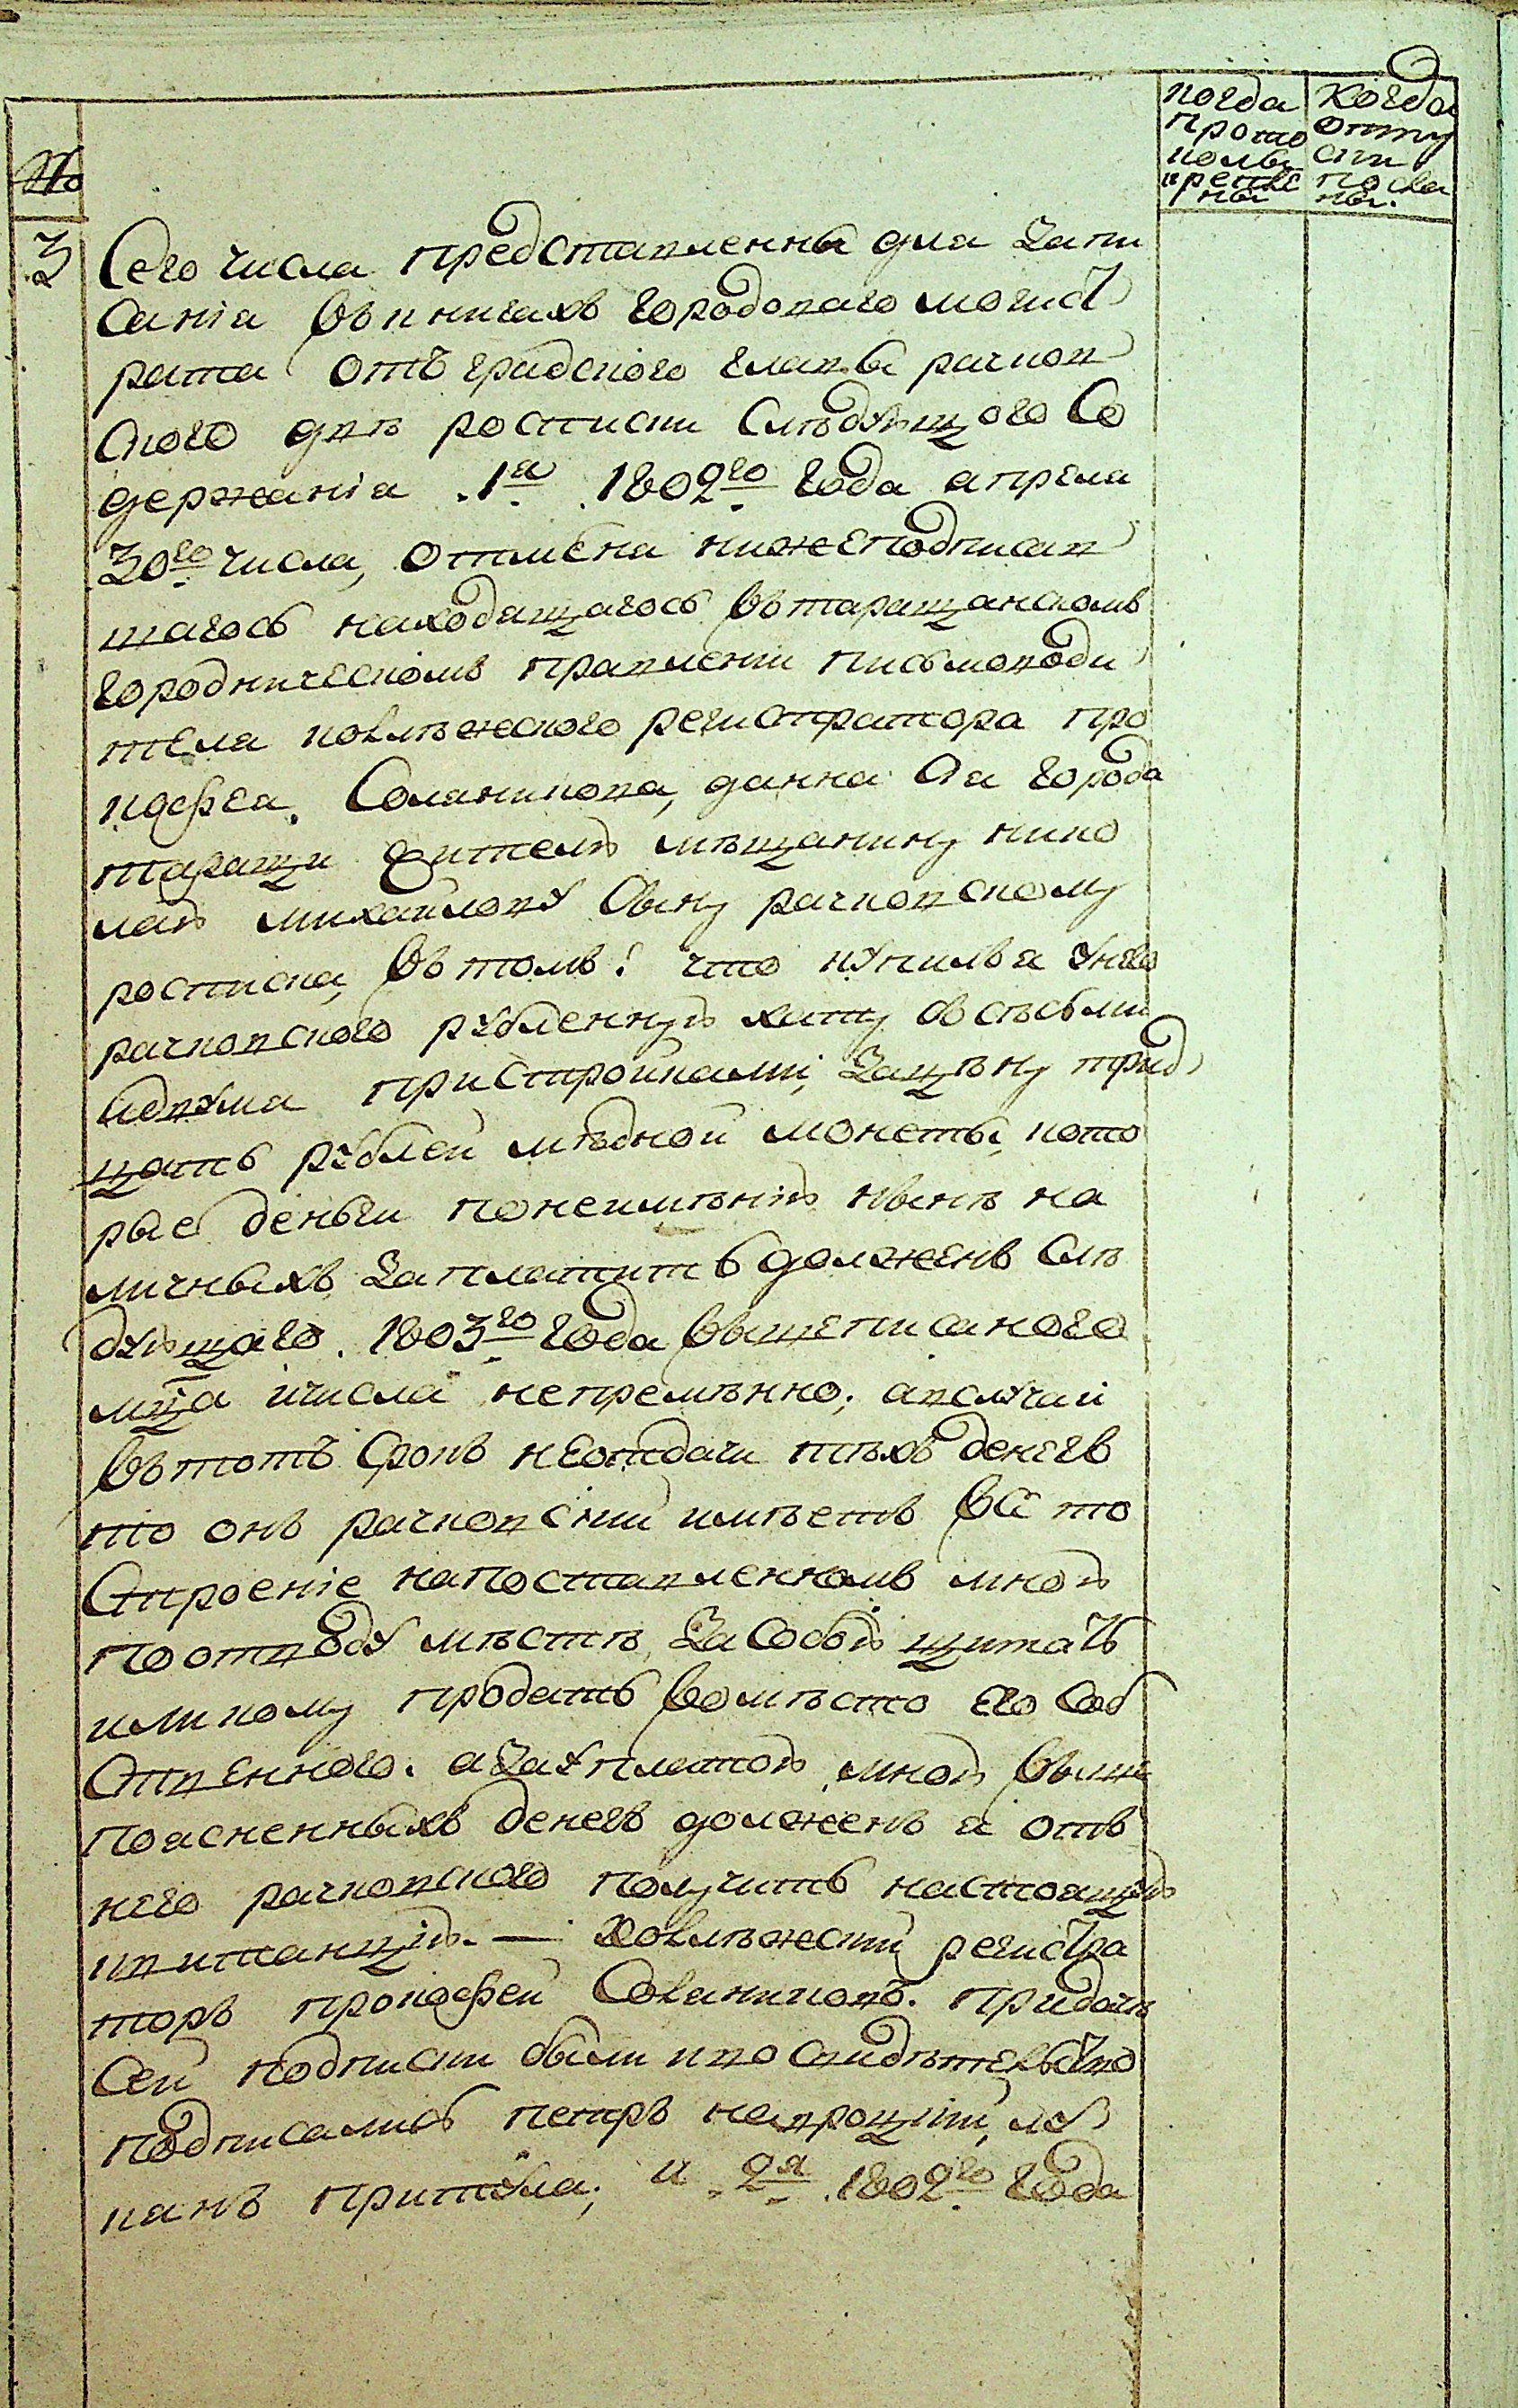 №
когда протоколы крепленны
Когда отпускы посланы.
3
Сего числа представленны для запи
санiя въ книгахъ городового могист
рата отъ градского главы рачков
ского двѣ росписки Слѣдующого Со
держанiя 1я 1802го года апреля
30го числа, отъ мѣна нижеподписав
шагось находящагось въ таращанскомъ
городническомъ правленiи письмоводи
теля колѣжского регистратора про
кофея Соляникова, данна Ся города
таращи жителю мѣщанину нико
лаю михайлову Сыну рачковскому
росписка, въ томъ: что купилъ я у него
рачковского рубленную хату со всѣми
идвума пристройками, зацѣну трид
цать рублей мѣдной монеты, кото
рые деньги понеимѣнiю нынѣ на
личныхъ, заплатить долженъ Слѣ
дующаго 1803го года вышеписаного
мца ичисла непремѣнно; авслучаи
въ тотъ Срокъ неотдачи тѣхъ денегъ
то онъ рачковскiй имѣетъ всѣ то
Строенiе напоставленномъ мною
поотводу мѣстѣ, за Собою щитать
или кому продать вомѣсто его Соб
Ственного. азауплатою мною выше
поясненныхъ денегъ долженъ я отъ
него рачковского получить настоящую
квитанцiю. — Колѣжескiй регистра
торъ прокофей Соляниковъ. придачѣ
Сей подписки были иво свидѣтельство
подписались петръ навроцкiй, лу
кянъ притула; и 2я 1802го года